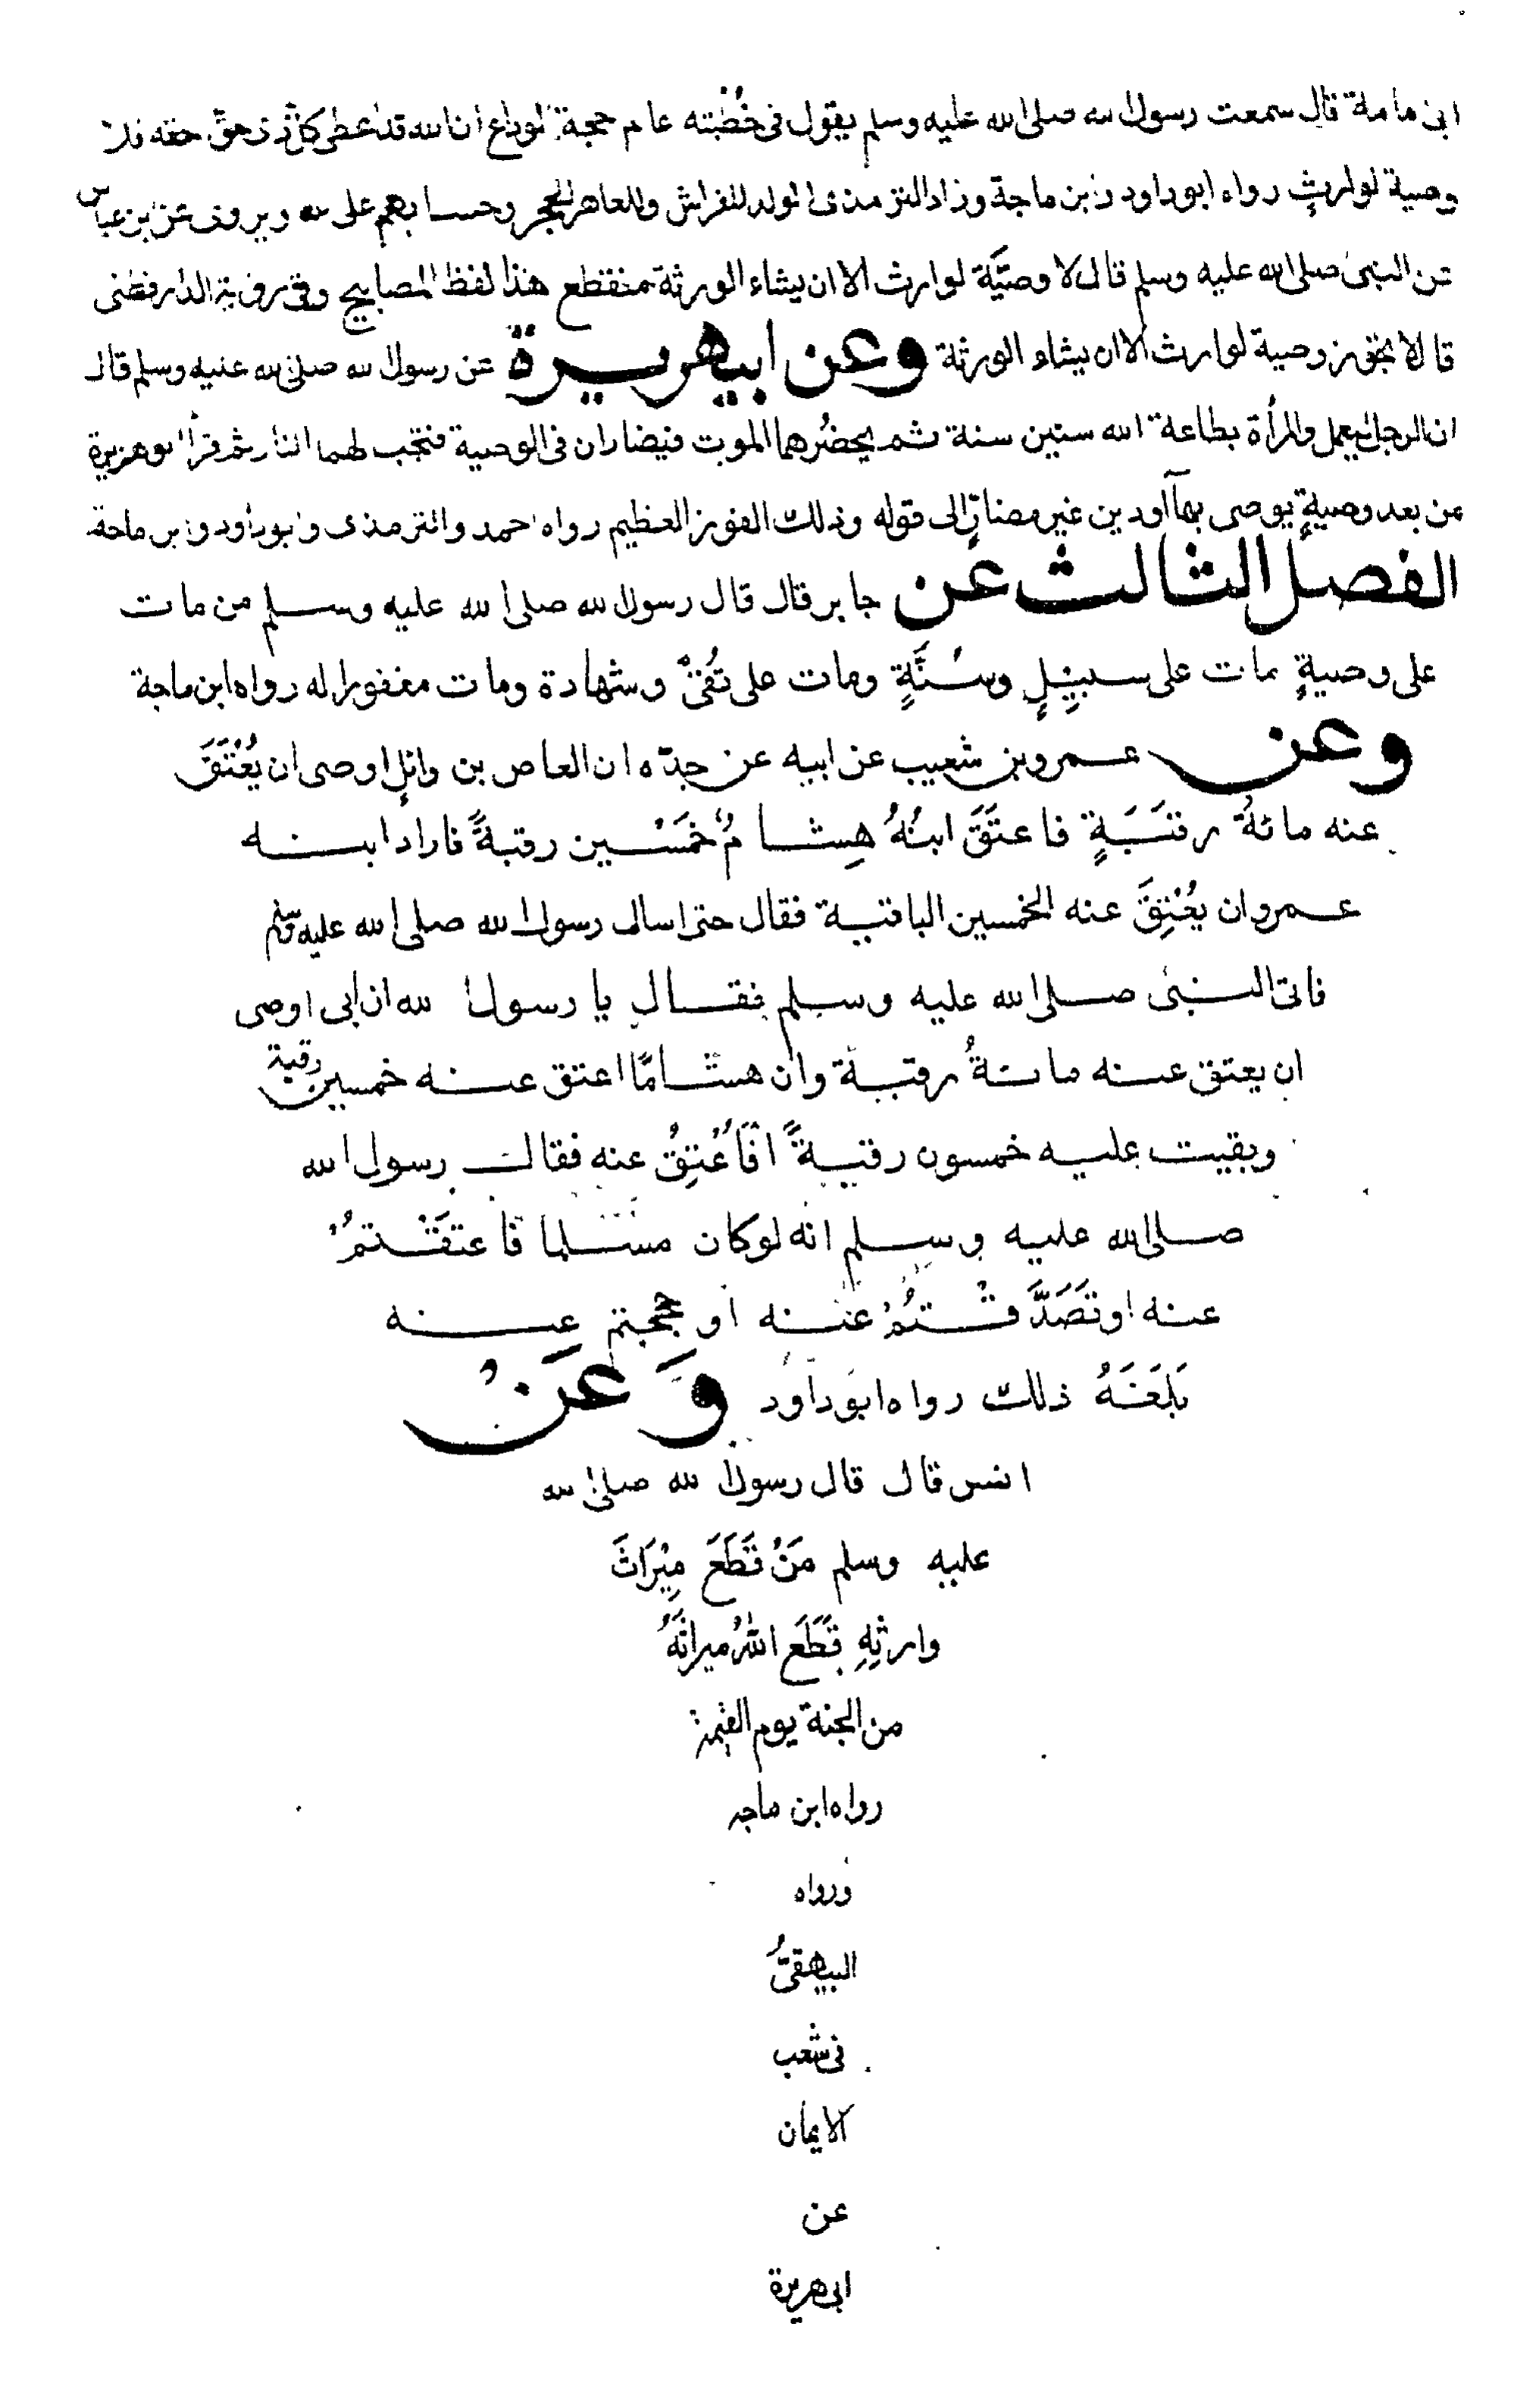 ابى مامة قال سمعت رسول الله صلى الله عليه وسلم يقول فى خُطْبته عام حجة الوداع ان الله قد اعطى كل ذى حقٍّ حقه فلا
وصية لوارثٍ رواه ابو داود وابن ماجة وزاد الترمذى الولد للفراش وللعاهر الحجر وحسابهم على الله ويروى عن ابن عباس
عن النبى صلى الله عليه وسلم قال لا وصيَّة لوارث الا ان يشاء الورثة منقطع هذا لفظ المصابيح وفى رواية الدارقطنى
قال لا تجوز وصية لوارث الا ان يشاء الورثة وعن ابى هريرة عن رسول الله صلى الله عليه وسلم قال
ان الرجل ليعمل والمرأة بطاعة الله ستين سنة ثم يحضُرهما الموت فيضاران فى الوصية فتجب لهما النار ثم قرأ ابو هريرة
من بعد وصيةٍ يوصى بهآ او دين غير مضارٍّ الى قوله وذلك الفوز العظيم رواه احمد والترمذى وابو داود وابن ماجة
الفصل الثالث عن جابر قال قال رسول الله صلى الله عليه وسلم من مات
على وصيةٍ مات على سبيلٍ وسُنَّةٍ ومات على تُقىً وشهادة ومات مغفورا له رواه ابن ماجة
وعن عمرو بن شعيب عن ابيه عن جدّه ان العاص بن وائلٍ اوصى ان يُعْتَقَ
عنه مائةُ رقَبَةٍ فاعتَقَ ابنُهُ هِشامٌ خَمْسين رقبةً فاراد ابنه
عمرو ان يُعْتِقَ عنه الخمسين الباقية فقال حتى اسال رسول الله صلى الله عليه وسلم
فاتى النبى صلى الله عليه وسلم فقال يا رسول الله ان ابى اوصى
ان يعتق عنه مائةُ رقبة وان هشامًا اعتق عنه خمسين رقبة
وبقيت عليه خمسون رقبةً افَاُعْتِقُ عنه فقال رسول الله
صلى الله عليه وسلم انه لو كان مسْلما فاعتقْتمْ
عنه او تَصَدَّقْتُمْ عنه او حججتم عنه
بَلَغَهُ ذلك رواه ابو داود وَعَنْ
انس قال قال رسول الله صلى الله
عليه وسلم مَنْ قَطَعَ مِيْرَاثَ
وارثِهِ قَطَعَ اللهُ ميراثَهُ
من الجنة يوم القيمة
رواه ابن ماجه
ورواه
البيهقىُّ
فى شعب
الايمان
عن
ابى هريرة